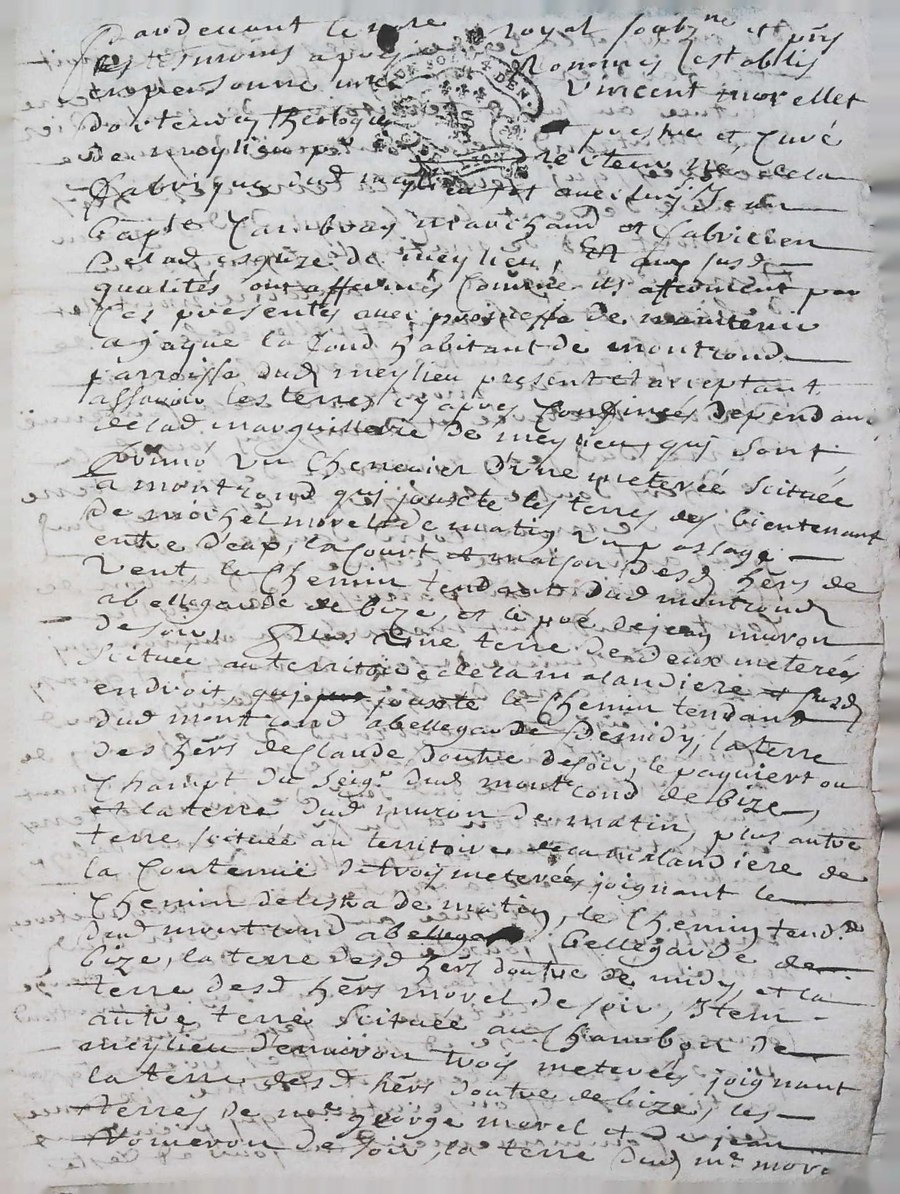 Pardevant le no.re royal soubz.né et p̃ns
les tesmoins apres nommés s'est estably
en personne m.re Vincent morellet
docteur en theologie prestre et curé
de meylieu recteur né de la
fabrique dud meylieu et avec luy Jean
bapt.e Cambray marchand et fabricien
de lad esglize de meylieu, Et aux susd
qualités ont affermés comme ils afferment par
ces presentes avec promesse de maintenir
a jaque la fond habitant de montrond
parroisse dud meylieu present et acceptant
assavoir les terres cy apres confinées dependant
de lad marguillerie de meylieu, qui sont
primo un chenevier d'une meterée scituée
a montrond qui jouxte les terres des bientenant
de michel morel de matin un passage
entre deux, la court et maison desd hērs de
vent, le chemin tendant dud montrond
a bellegarde de bize, et le pré de jean muron
de soir, Plus Une terre de deux meterées
scituée au territoire de la malandiere et susd
endroit, qui jouxte le chemin tendant
dud montrond a bellegarde de midy, la terre
des hērs de Claude doutre de soir, le paquier ou
champt du seig.r dud montrond de bize,
et la terre dud muron de matin, plus autre
terre scituée au territoire de la malandiere de
la contenue de trois meterées joignant le
chemin de de matin, le chemin tend.t
dud montrond a bellegarde de
bize, la terre desd hērs doutre de midy, et la
terre desd hērs morel de soir, Item
autre terre scituée au chambon de
meylieu d'environ trois meterées joignant
la terre desd hērs doutre de bize, les
terres de m.e george morel et de jean
de soir, la terre dud m.e morel